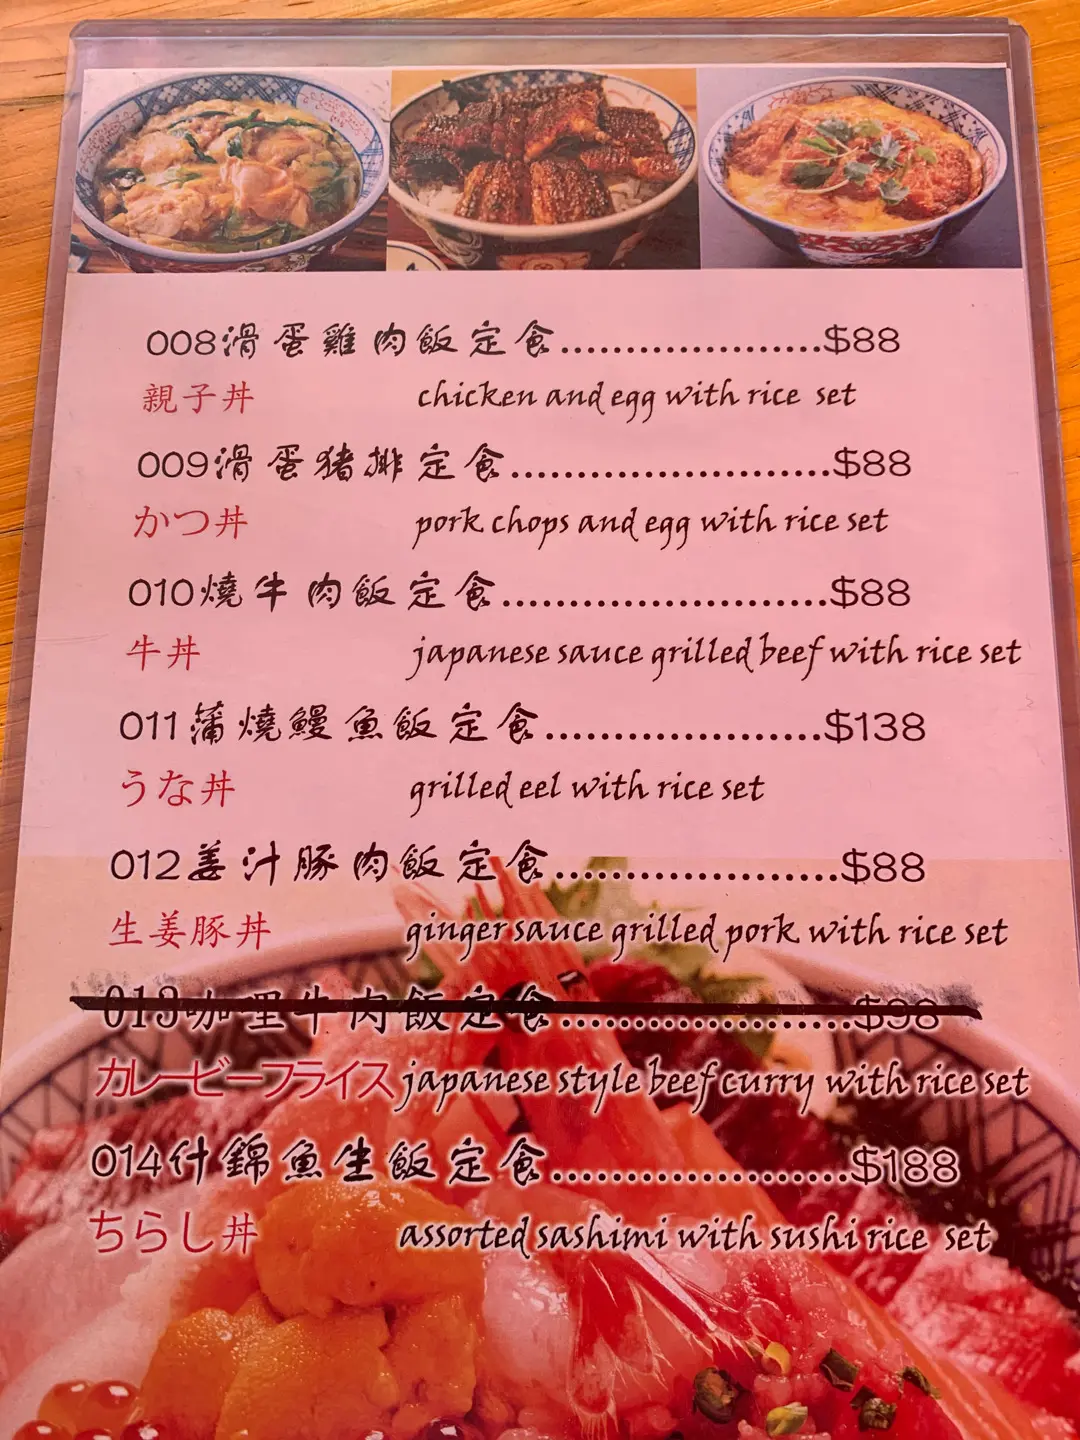 008滑蛋雞肉飯定食....................$88
親子丼 chicken and egg with rice set
009滑蛋猪排定食........................$88
かつ丼 pork chops and egg with rice set
010燒牛肉飯定食........................$88
牛丼 japanese sauce grilled beef with rice set
011蒲燒鰻魚飯定食.....................$138
うな丼 grilled eel with rice set
012姜汁豚肉飯定食.....................$88
生姜豚丼 ginger sauce grilled pork with rice set
013咖哩牛肉飯定食......................$98
カレービーフライス japanese style beef curry with rice set
014什錦魚生飯定食......................$188
ちらし丼 assorted sashimi with sushi rice set